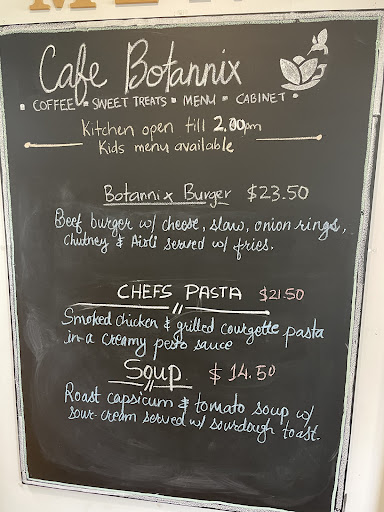 Cafe Botannix
• COFFEE • SWEET TREATS • MENU • CABINET •
Kitchen open till 2.00pm
Kids menu available
Botannix Burger $23.50
Beef burger w/ cheese, slaw, onion rings,
chutney & Aioli served w/ fries.
CHEFS PASTA $21.50
Smoked chicken & grilled courgette pasta
in a creamy pesto sauce
Soup $14.50
Roast capsicum & tomato soup w/
sour-cream served w/ sourdough toast.